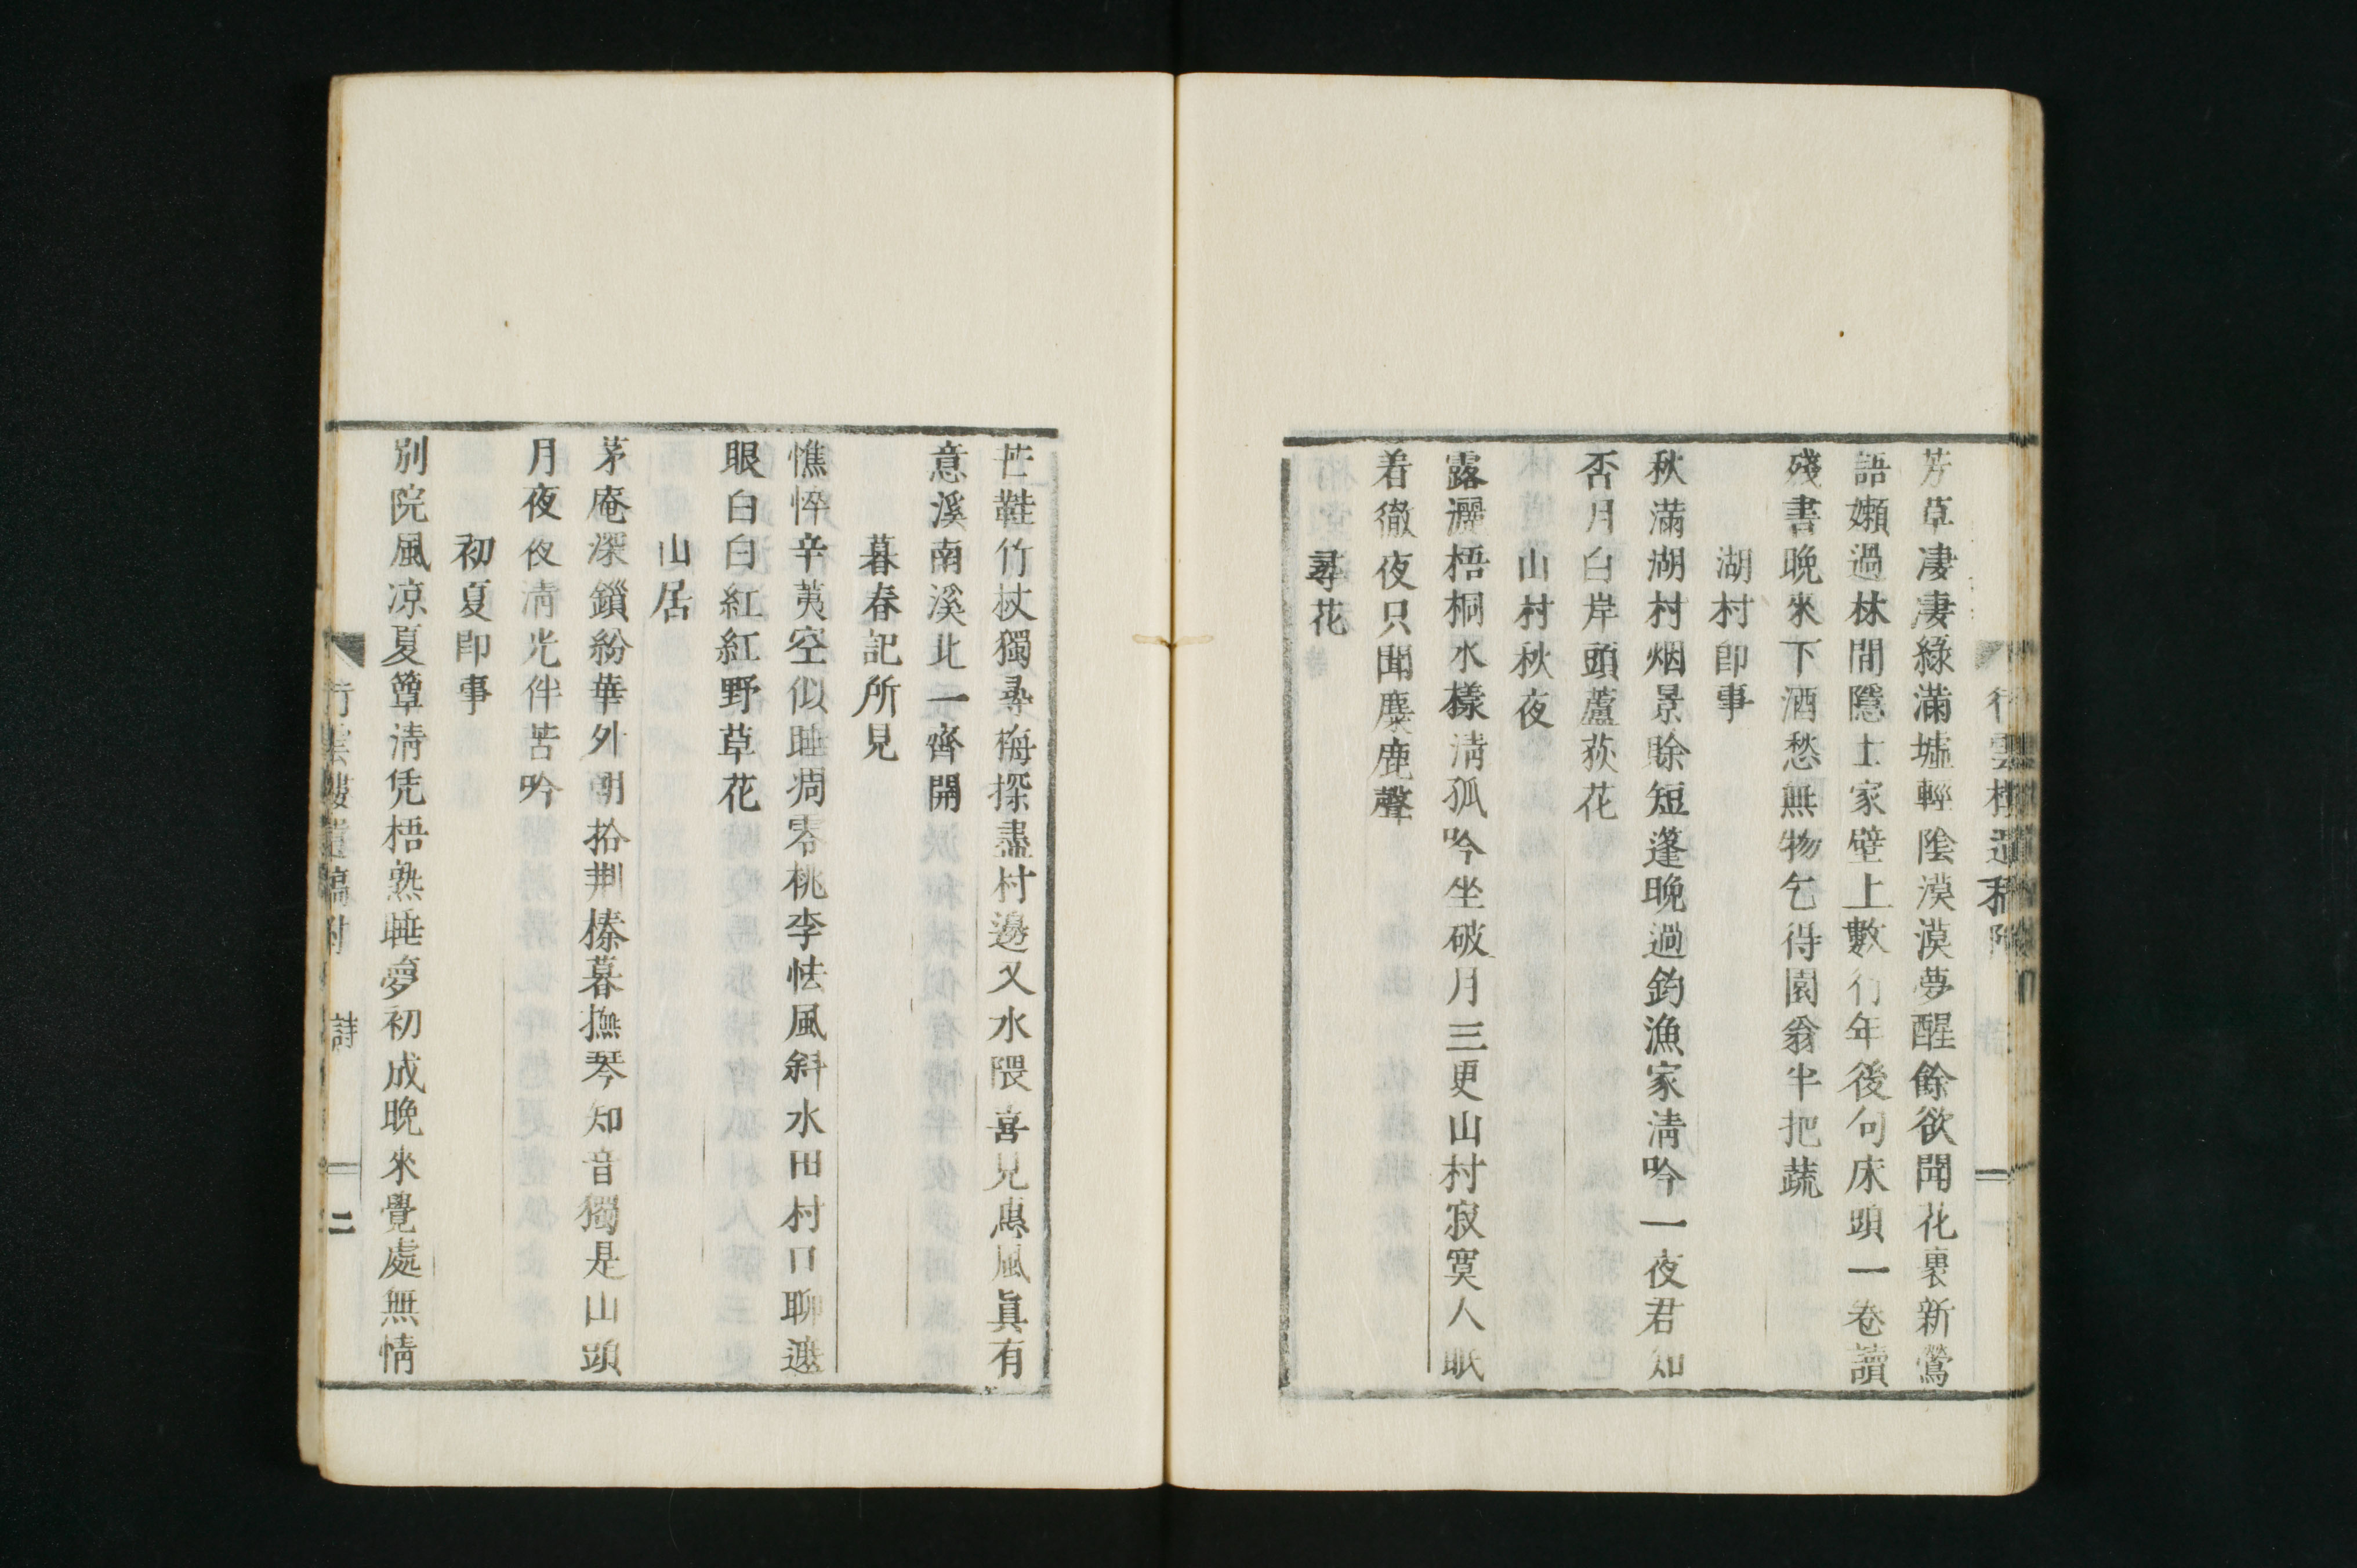 芳草凄凄綠滿墟輕陰漠漠夢醒餘欲聞花裏新鶯
語嬾過林間隱士家壁上數行年後句床頭一卷讀
殘書晩來下酒愁無物乞得園翁半把蔬
湖村卽事
秋滿湖村烟景賒短蓬晩過釣漁家淸吟一夜君知
否月白岸頭蘆荻花
山村秋夜
露灑梧桐水樣淸孤吟坐破月三更山村寂寞人眠
着徹夜只聞麋鹿聲
尋花
芒鞋竹杖獨尋梅探盡村邊又水隈喜見惠風眞有
意溪南溪北一齊開
暮春記所見
憔悴辛荑空似睡凋零桃李怯風斜水田村口聊遮
眼白白紅紅野草花
山居
茅庵深鎖紛華外朝拾荆榛暮撫琴知音獨是山頭
月夜夜淸光伴苦吟
初夏卽事
別院風凉夏簟淸凭梧熟睡夢初成晩來覺處無情
行雲樓遺稿附 詩 二